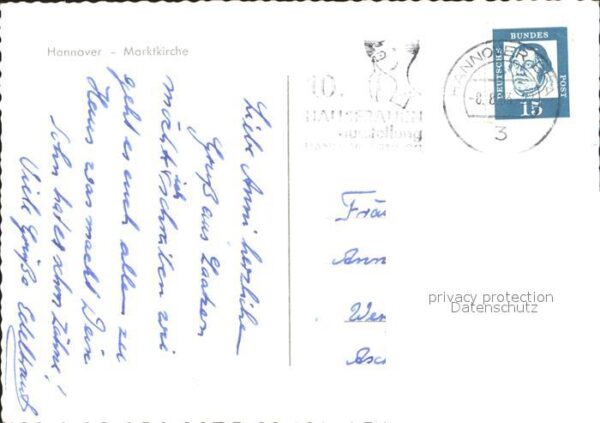 Hannover - Marktkirche
10.
HAUSFRAUEN
ausstellung
HANNOVER
-8.8.
3
DEUTSCHE BUNDES POST
15
Liebe Anni herzlichen
Gruß aus Laatzen
möcht ich schreiben wie
geht es euch allen zu
Haus was macht Dein
Sohn hat er schon Zähne!
Viele Grüße Edeltraud
Frau
Ann
We
Asc
privacy protection
Datenschutz